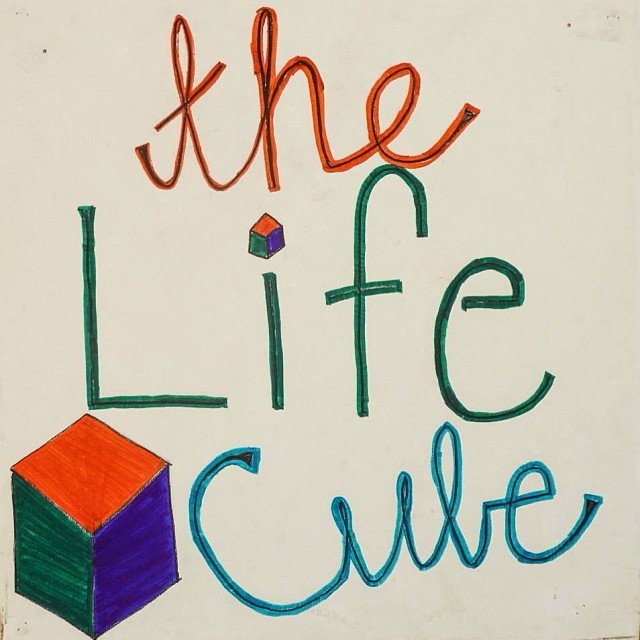 the
Life
Cube